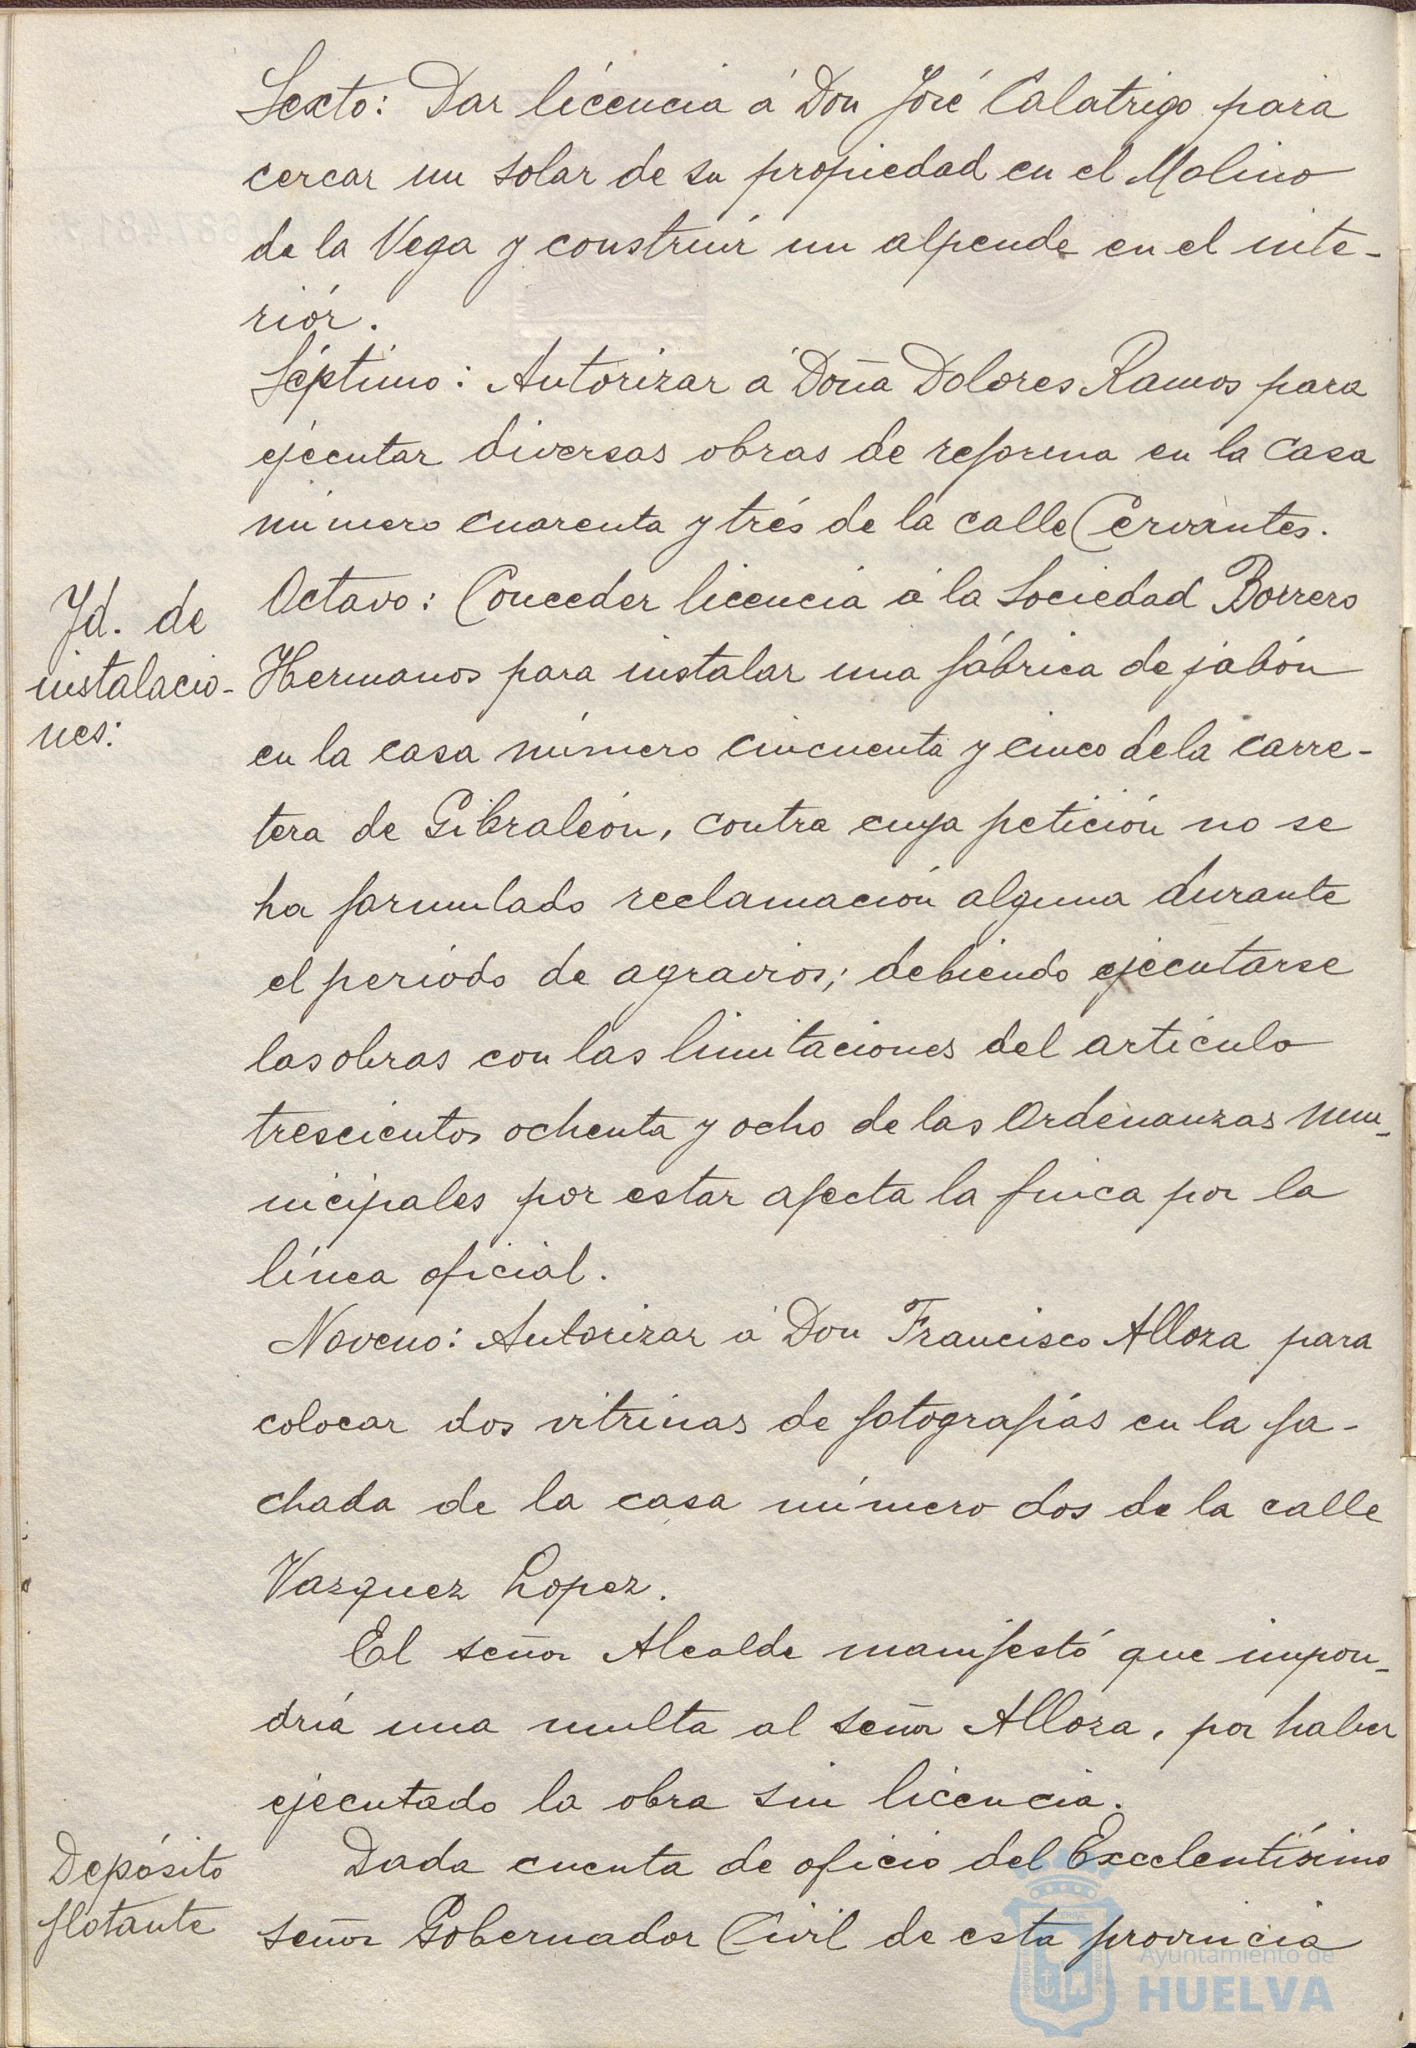 Sexto: Dar licencia á Don José Calatrigo para
cercar un solar de su propiedad en el Molino
de la Vega y construír un alpende en el inte-
riór.
Séptimo: Autorizar á Doña Dolores Ramos para
ejecutar diversas obras de reforma en la casa
número cuarenta y trés de la calle Cervantes.
Id. de
instalacio-
nes:
Octavo: Conceder licencia á la Sociedad Borrero
Hermanos para instalar una fábrica de jabón
en la casa número cincuenta y cinco de la carre-
tera de Gibraleón, contra cuya petición no se
ha formulado reclamación alguna durante
el período de agravios; debiendo ejecutarse
las obras con las limitaciones del artículo
trescientos ochenta y ocho de las Ordenanzas mu-
nicipales por estar afecta la finca por la
línea oficial.
Noveno: Autorizar á Don Francisco Alloza para
colocar dos vitrinas de fotografías en la fa-
chada de la casa número dos de la calle
Vazquez Lopez.
El señor Alcalde manifestó que impon-
dría una multa al señor Alloza, por haber
ejecutado la obra sin licencia.
Depósito
flotante
Dada cuenta de oficio del Excelentísimo
señor Gobernador Civil de esta provincia
Ayuntamiento de
HUELVA